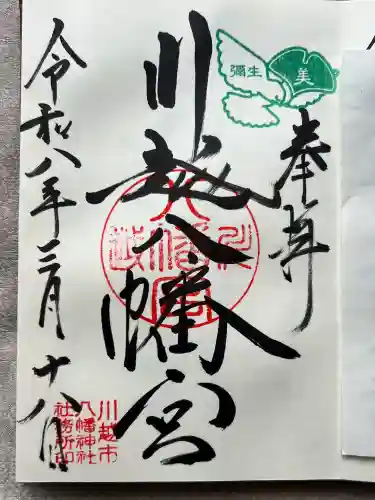 奉拝
彌生
美
川越八幡宮
川越市
八幡神社
社務所印
令和八年三月十八日